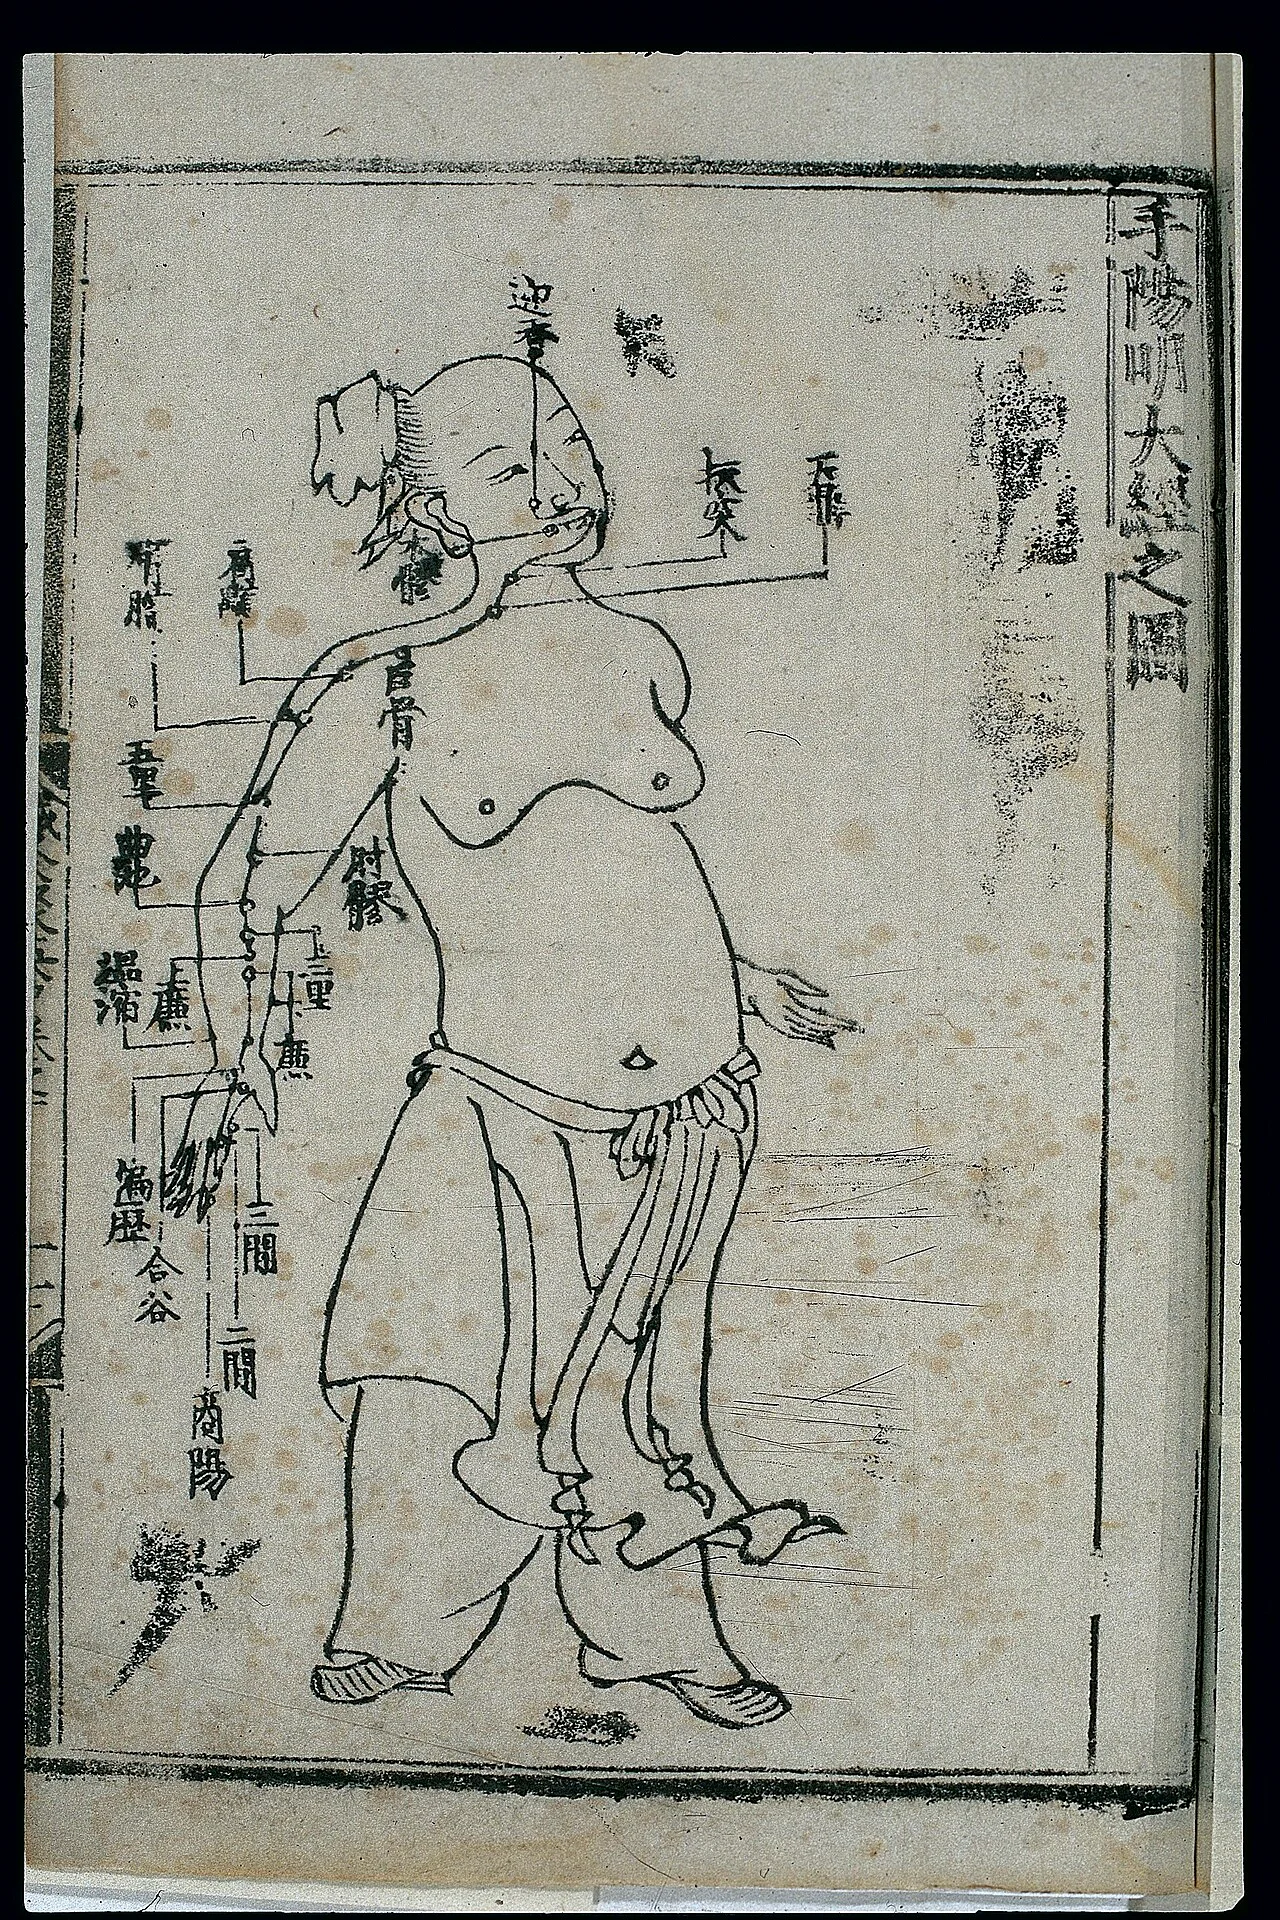 手陽明大經之圖
迎香
扶突
天鼎
禾髎
肩髃
臂臑
巨骨
五里
曲池
肘髎
三里
上廉
下廉
溫溜
偏歷
合谷
三間
二間
商陽